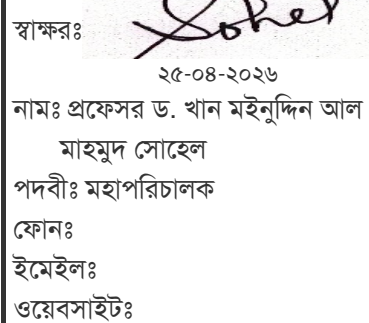 স্বাক্ষরঃ Sohel
২৫-০৪-২০২৬
নামঃ প্রফেসর ড. খান মইনুদ্দিন আল
মাহমুদ সোহেল
পদবীঃ মহাপরিচালক
ফোনঃ
ইমেইলঃ
ওয়েবসাইটঃ